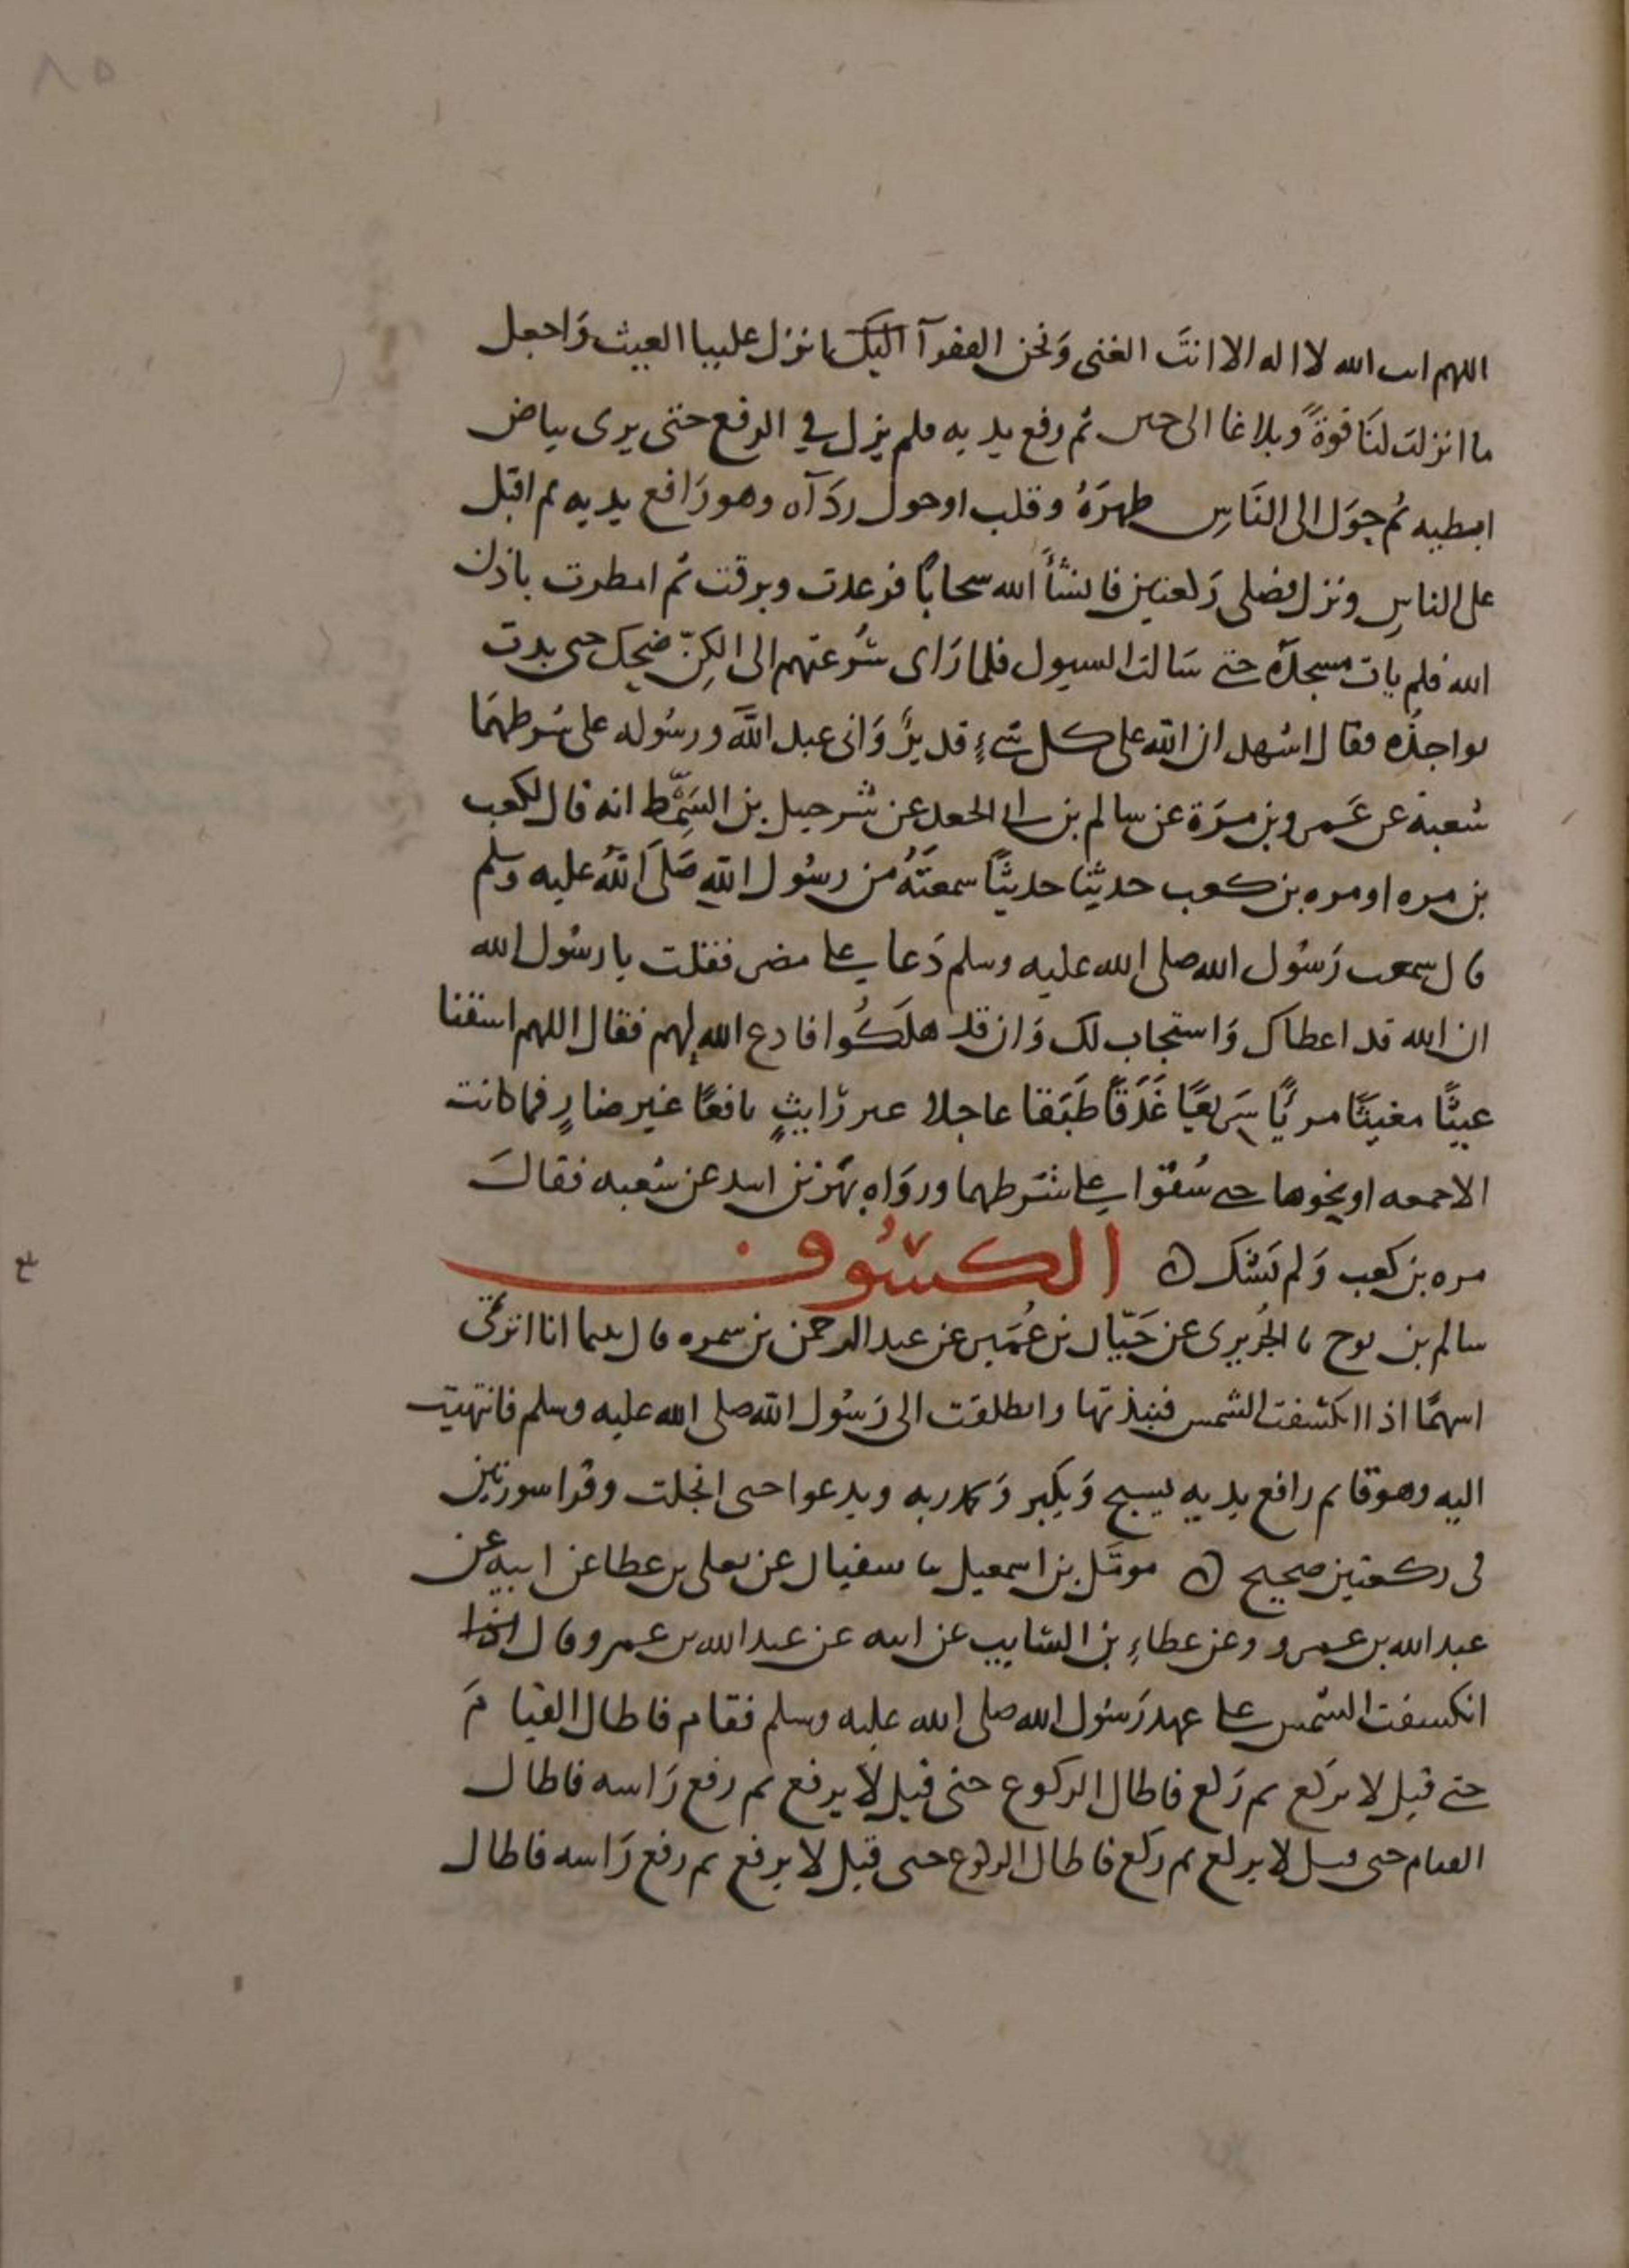 ٨٥
اللهم انت الله لا اله الا انتَ الغنى وَنحن الفقرآ اليك انزل علينا الغيث وَاجعل
ما انزلت لنَا قوةً وَبلاغا الى حين ثم رفع يديه فلم يزل في الرفع حتى يرى بياض
ابطيه ثم حوَل الى النَاسِ ظهرَهُ وقلب او حول ردَآه وهو رَافع يديه ثم اقبل
على الناسِ ونزل فصلى رَكعتين فانشأَ الله سحابًا فرعدت وبرقت ثم امطرت باذن
الله فلم يات مسجدَه حتى سَالت السيول فلما رَاى سُرعتهم الى الكِنّ ضحك حتى بدت
نواجذُه فقال اشهد ان الله على كل شيءٍ قديرٌ وَانى عبد اللَّه ورسُوله على شرطهمَا
شعبة عن عَمرو بن مرَة عن سالم بن ابي الجعد عن شرحبيل بن السِّمْط انه قال لكعب
بن مره او مره بن كعب حدثينا حديثًا سمعتَهُ من رسُول اللهِ صَلى اللهُ عليه وسلم
قال سمعت رَسُول الله صلى الله عليه وسلم دَعا على مضر فقلت يا رسُول الله
ان الله قد اعطاك وَاستجاب لك وَان قد هلكُوا فادع الله لهم فقال اللهم اسقنا
غيثًا مغيثًا مريًا سَريعًا غَدَقًا طَبَقا عاجلا غير رَايثٍ نافعًا غير ضارٍ فما كانت
الا جمعه او نحوها حتى سُقُوا على شَرطهما وروَاه بَهز بن اسد عن شعبه فقالَ
مره بن كعب وَلم يَشك ه الكسُوف
سالم بن نوح نا الجُريرى عن حَيّان بن عُمَير عن عبد الرحمن بن سمره قال بينما انا اترمَّى
اسهمًا اذ انكشفت الشمس فنبذتها وانطلقت الى رَسُول الله صلى الله عليه وسلم فانتهيت
اليه وهو قايم رافع يديه يسبح وَيكبر وَيحمد ربه ويدعوا حتى انجلت وقرا سورتين
فى ركعتين صحيح ه مومَل بن اسمعيل نا سفيان عن يعلى بن عطا عن ابيه عن
عبد الله بن عمرو وعن عطاءِ بن السَايب عن ابيه عن عبد الله بن عمرو قال
انكسفت الشمس على عهد رَسُول الله صلى الله عليه وسلم فقام فاطال القيامَ
حتى قيل لا يركع ثم رَكع فاطال الركوع حتى قيل لا يرفع ثم رفع رَاسه فاطال
القيام حتى قيل لا يركع ثم ركع فاطال الركوع حتى قيل لا يرفع ثم رفع رَاسه فاطال